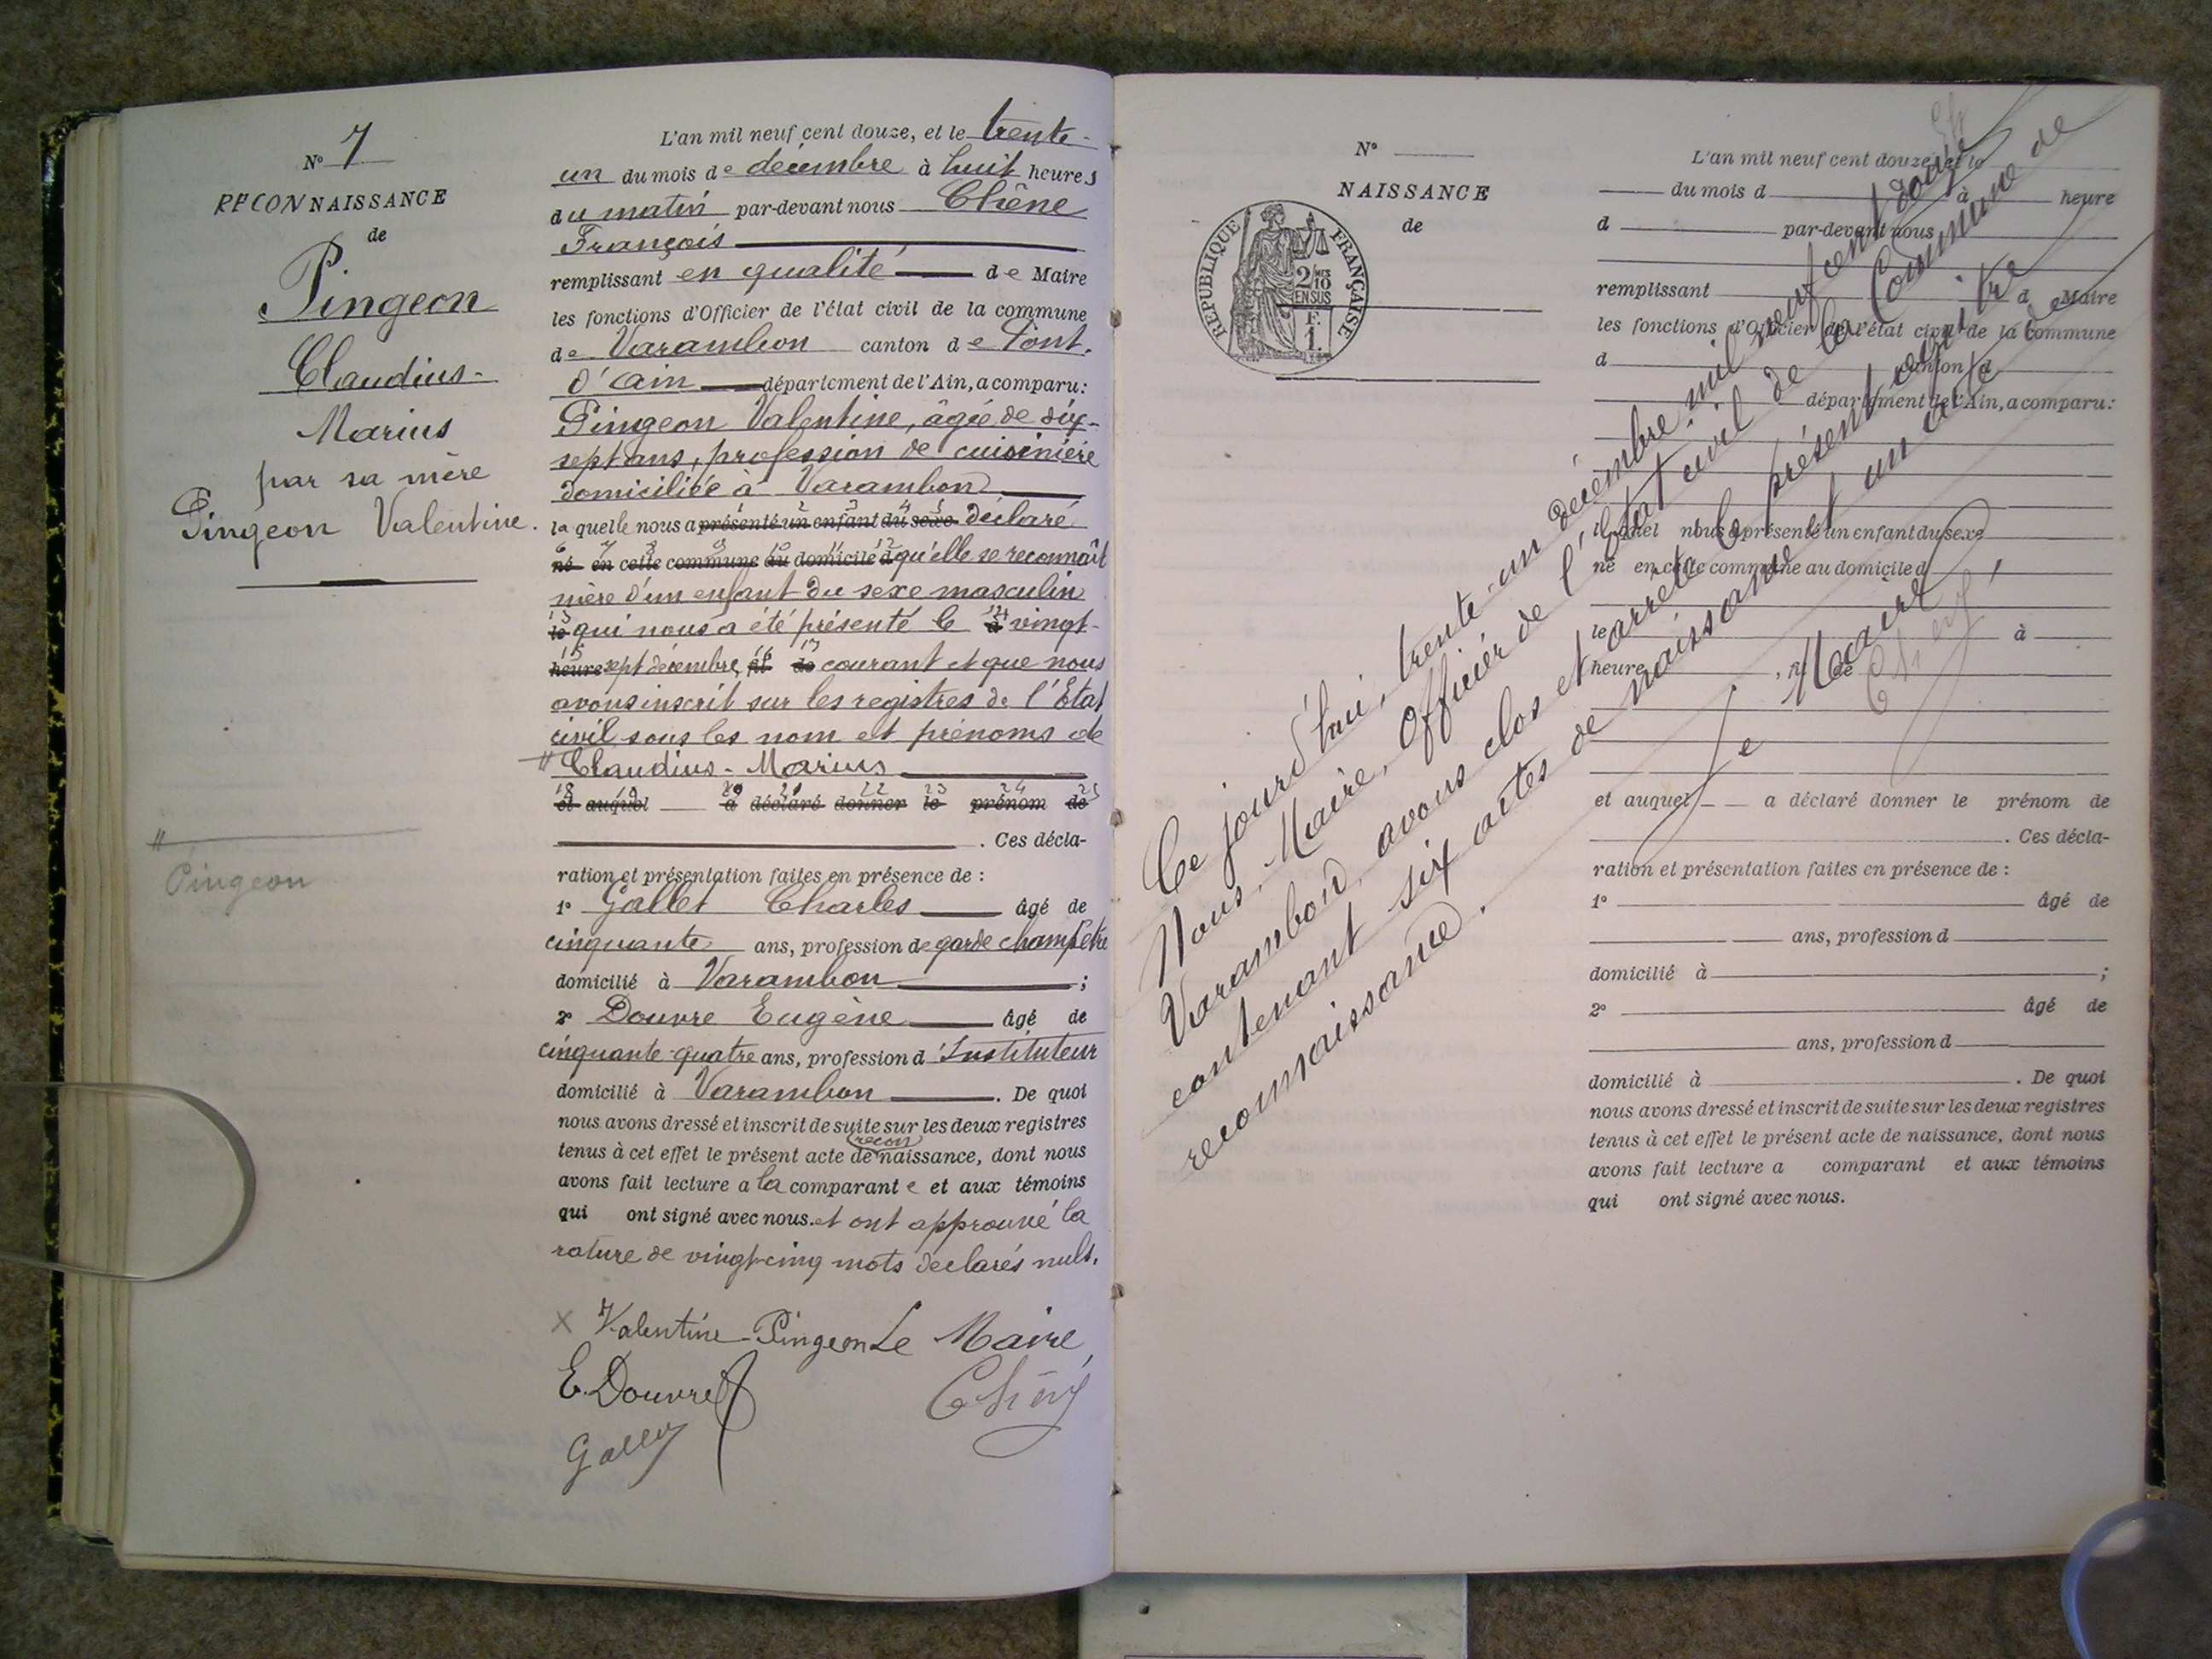 N° 7
RECONNAISSANCE
de
Pingeon
Claudius-
Marius
par sa mère
Pingeon Valentine.
"
Pingeon
L'an mil neuf cent douze, et le trente-
un du mois de décembre à huit heures
du matin par-devant nous Chêne
François
remplissant en qualité de Maire
les fonctions d'Officier de l'état civil de la commune
de Varambon canton de Pont.
d'ain département de l'Ain, a comparu:
Pingeon Valentine, âgée de dix-
sept ans, profession de cuisinière
domiciliée à Varambon
la quelle nous a présenté un enfant du sexe déclaré
né en cette commune au domicile d qu'elle se reconnaît
mère d'un enfant du sexe masculin
le qui nous a été présenté le à vingt-
heure sept décembre, fil de courant et que nous
avons inscrit sur les registres de l'État
civil sous les nom et prénoms de
" Claudius-Marius
et auquel a déclaré donner le prénom de
. Ces décla-
ration et présentation faites en présence de :
1° Gallet Charles âgé de
cinquante ans, profession de garde champêtre
domicilié à Varambon ;
2° Douvre Eugène âgé de
cinquante-quatre ans, profession d'Instituteur
domicilié à Varambon . De quoi
nous avons dressé et inscrit de suite sur les deux registres
recon
tenus à cet effet le présent acte de naissance, dont nous
avons fait lecture a la comparante et aux témoins
qui ont signé avec nous. et ont approuvé la
rature de vingt-cinq mots declarés nuls.
x Valentine Pingeon Le Maire,
E. Douvre Chêne
Gallet
N°
NAISSANCE
de
RÉPUBLIQUE FRANÇAISE
2/10 MES
EN SUS
F.
1.
L'an mil neuf cent douze, et le
du mois d à heure
d par-devant nous
remplissant d Maire
les fonctions d'Officier de l'état civil de la commune
d canton d
département de l'Ain, a comparu:
lequel nous a présenté un enfant du sexe
né en cette commune au domicile d
le à
heure , fil de
et auquel a déclaré donner le prénom de
. Ces décla-
ration et présentation faites en présence de :
1° âgé de
ans, profession d
domicilié à ;
2° âgé de
ans, profession d
domicilié à . De quoi
nous avons dressé et inscrit de suite sur les deux registres
tenus à cet effet le présent acte de naissance, dont nous
avons fait lecture a comparant et aux témoins
qui ont signé avec nous.
Ce jourd'hui, trente-un décembre mil neuf cent douze
Nous, Maire, officier de l'État civil de la Commune de
Varambon, avons clos et arrêté le présent registre
contenant six actes de naissance et un acte de
reconnaissance.
Le Maire,
Chêne